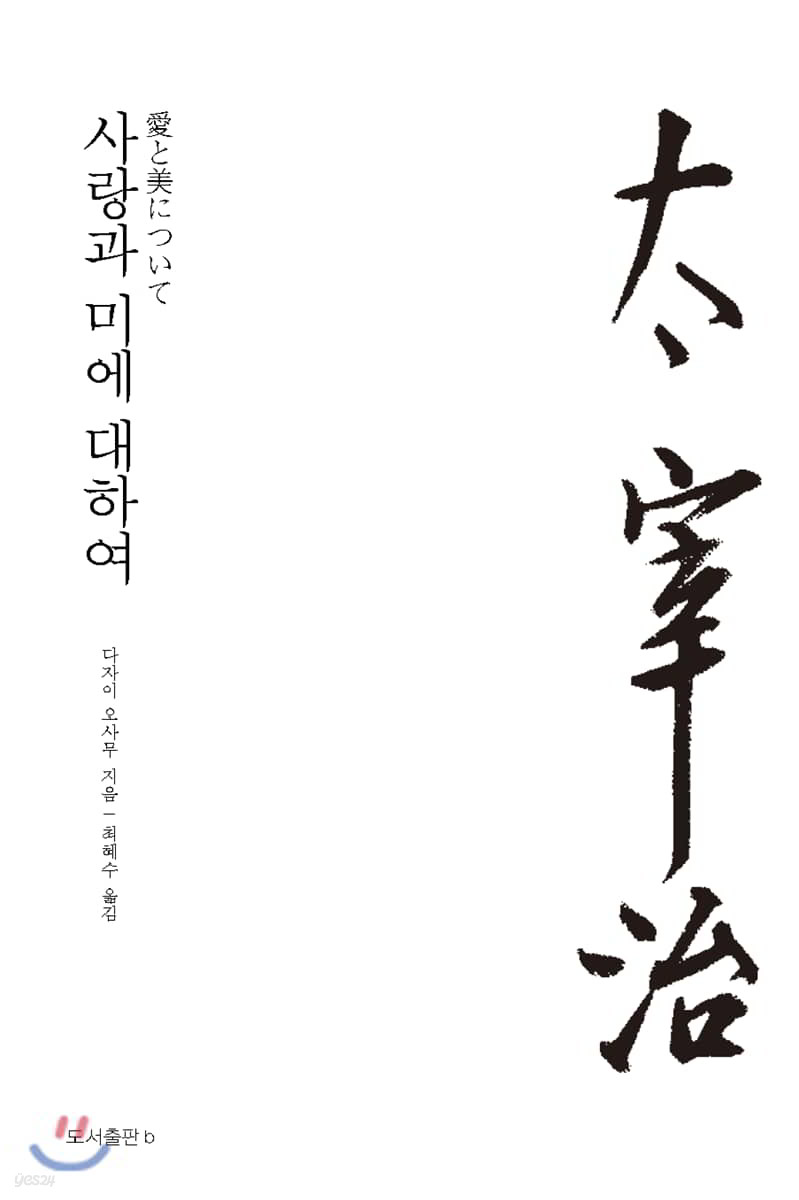 太宰治
愛と美について
사랑과 미에 대하여
다자이 오사무 지음 – 최혜수 옮김
도서출판 b
yes24